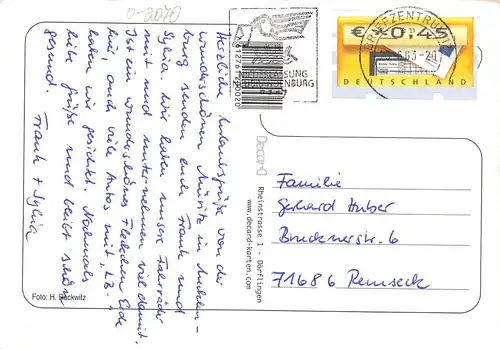 0-2070
Herzliche Urlaubsgrüße von der
wunderschönen Müritz in Mecklen-
burg senden euch Frank und
Sylvia. Wir haben unsere Fahrräder
mit und unternehmen viel damit.
Ist ein wunderschönes Fleckchen Erde
hier, auch viele Autos mit „LB-"
haben wir gesichtet. Nochmals
liebe Grüße und bleibt schön
gesund.
Frank + Sylvia
Foto: H. Bäckwitz
Decard
Rheinstrasse 1 · Dörflingen
www.decard-karten.com
BRIEFZENTRUM
€ 0,45
DEUTSCHLAND
Familie
Gerhard Huber
Brucknerstr. 6
71686 Remseck